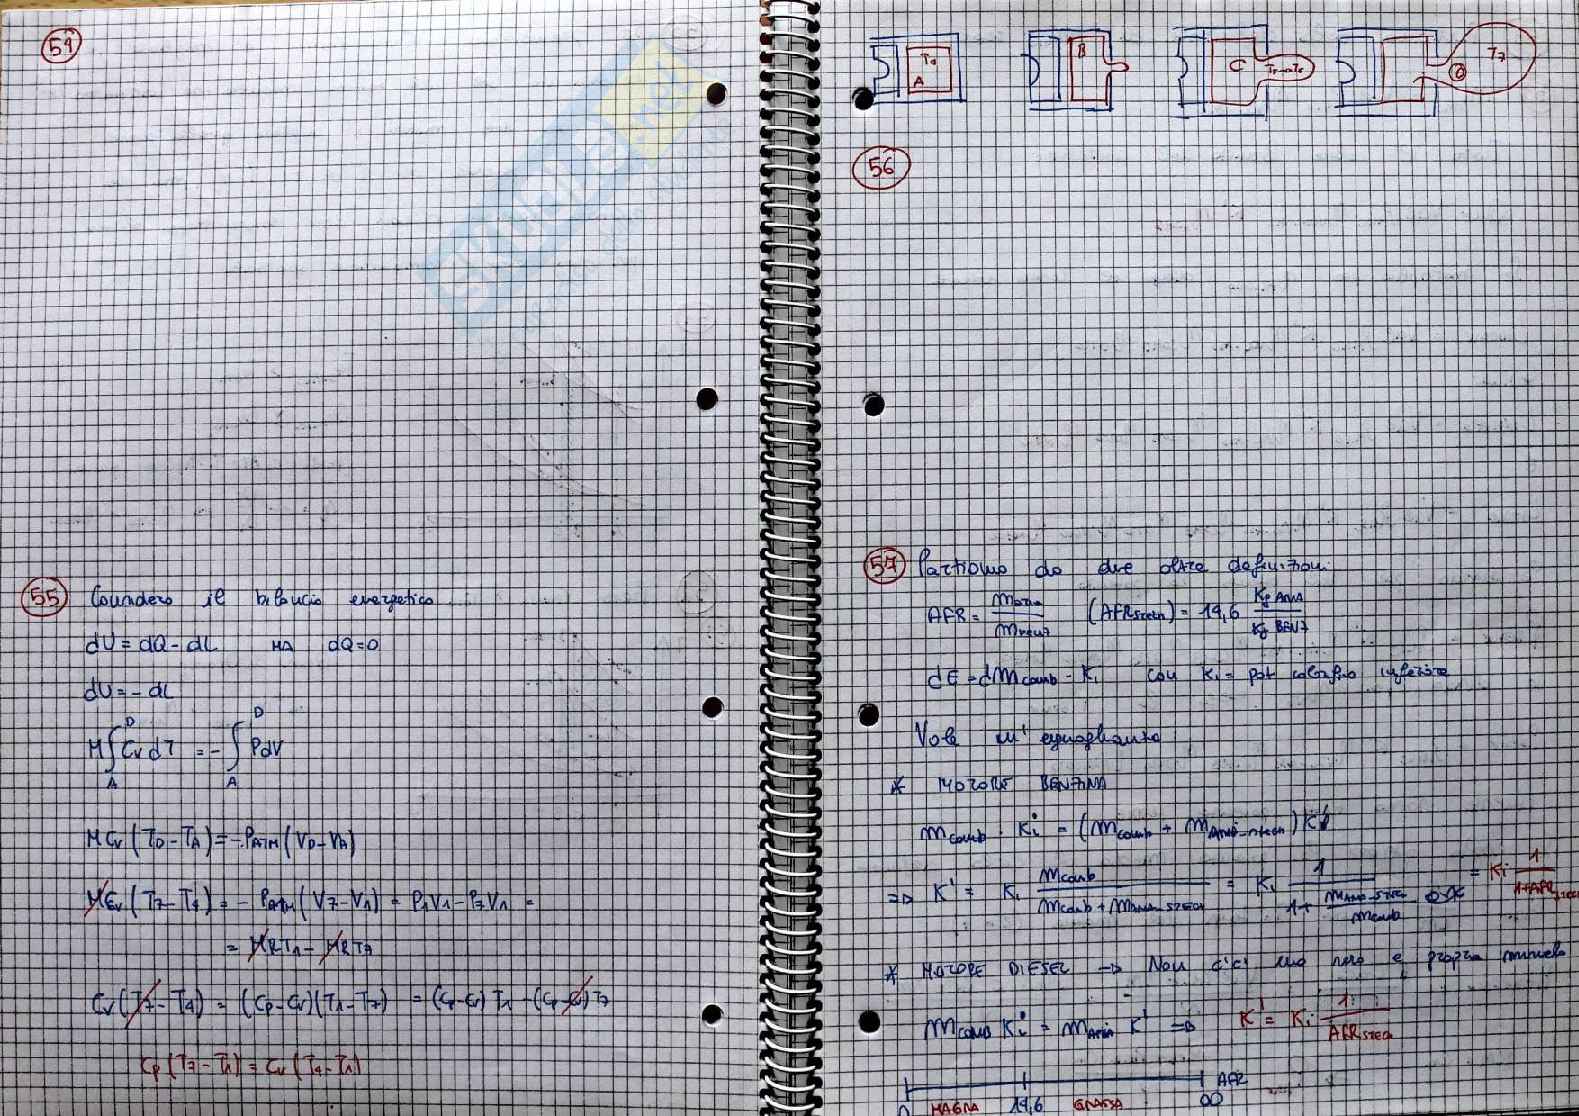 59
55 Considero il bilancio energetico
dU = dQ - dL MA dQ=0
dU = - dL
M∫ᴬᴰ Cv dT = - ∫ᴬᴰ PdV
M Cv (TD - TA) = - PATM (VD - VA)
M Cv (T7 - T4) = - PATM (V7 - V1) = P1V1 - P7V7 =
= MRT1 - MRT7
Cv (T7 - T4) = (Cp - Cv)(T1 - T7) = (Cp - Cv) T1 - (Cp - Cv) T7
Cp (T7 - T1) = Cv (T4 - T1)
SKUOLA.net
T4
A
B
C
D
T7
56
57 Partiamo da due altre definizioni
AFR = maria / m (AFRstech) = 14,6 Kg ARIA / Kg BENZ
dE = dmcomb · Ki con Ki = pot calorifico inferiore
Vale un' eguaglianza
* MOTORE BENZINA
mcomb · Ki = (mcomb + mARIA-stech) K'
=> K' = Ki mcomb / (mcomb + mARIA STECH) = Ki 1 / (1 + mARIA-STEC / mcomb) = Ki 1 / (1+AFRSTECH)
* MOTORE DIESEL -> Non c'è una vera e propria miscela
mcomb Ki = mARIA K' => K' = Ki 1 / AFRSTECH
AFR
0 MAGRA 14,6 GRASSA ∞